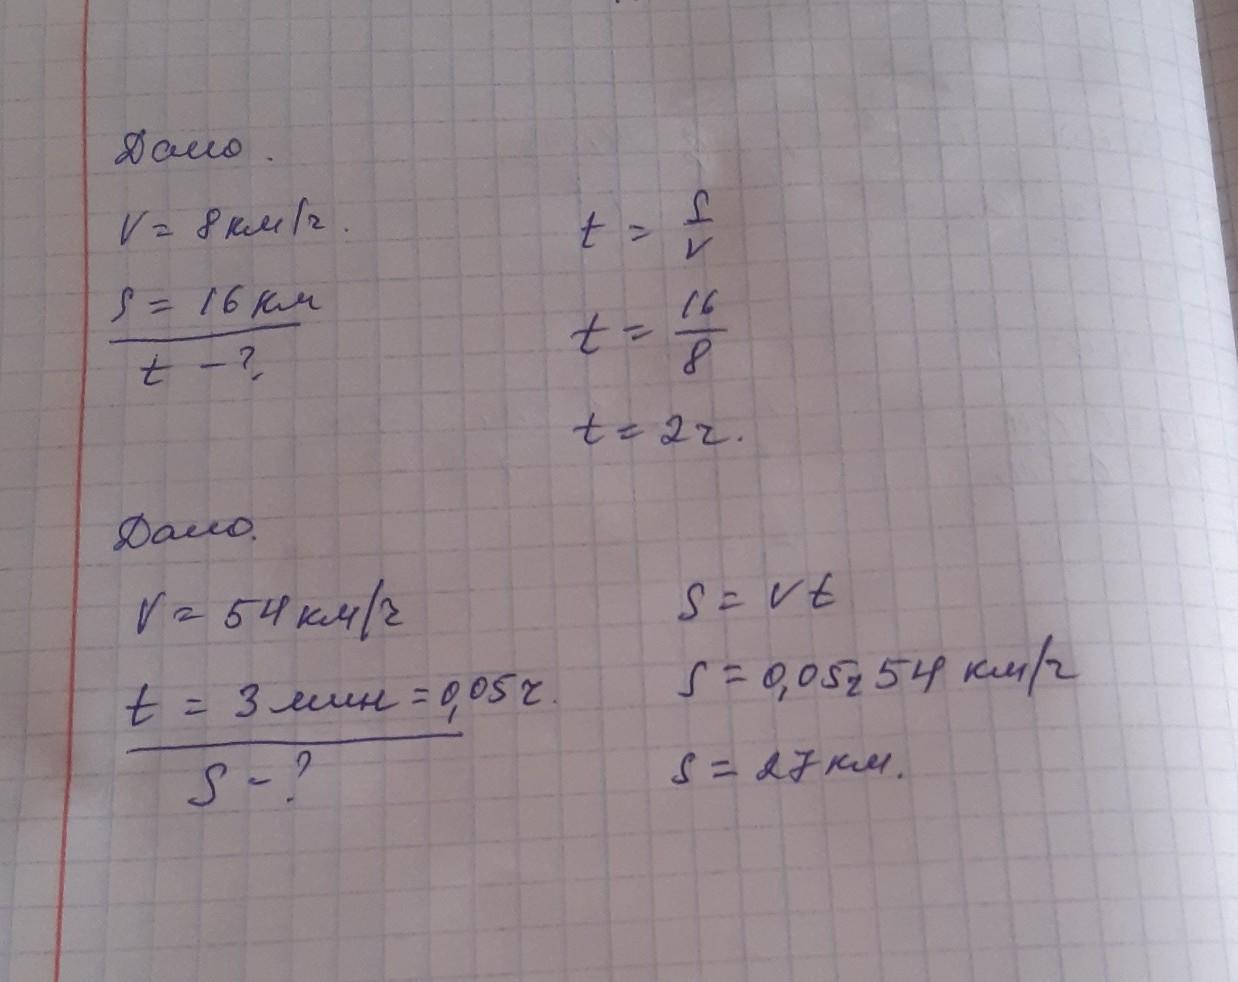 Дано.
V = 8 км/ч.
S = 16 км
t - ?
t = S/V
t = 16/8
t = 2 ч.
Дано.
V = 54 км/ч
t = 3 мин = 0,05 ч.
S - ?
S = V t
S = 0,05 ч 54 км/ч
S = 27 км.